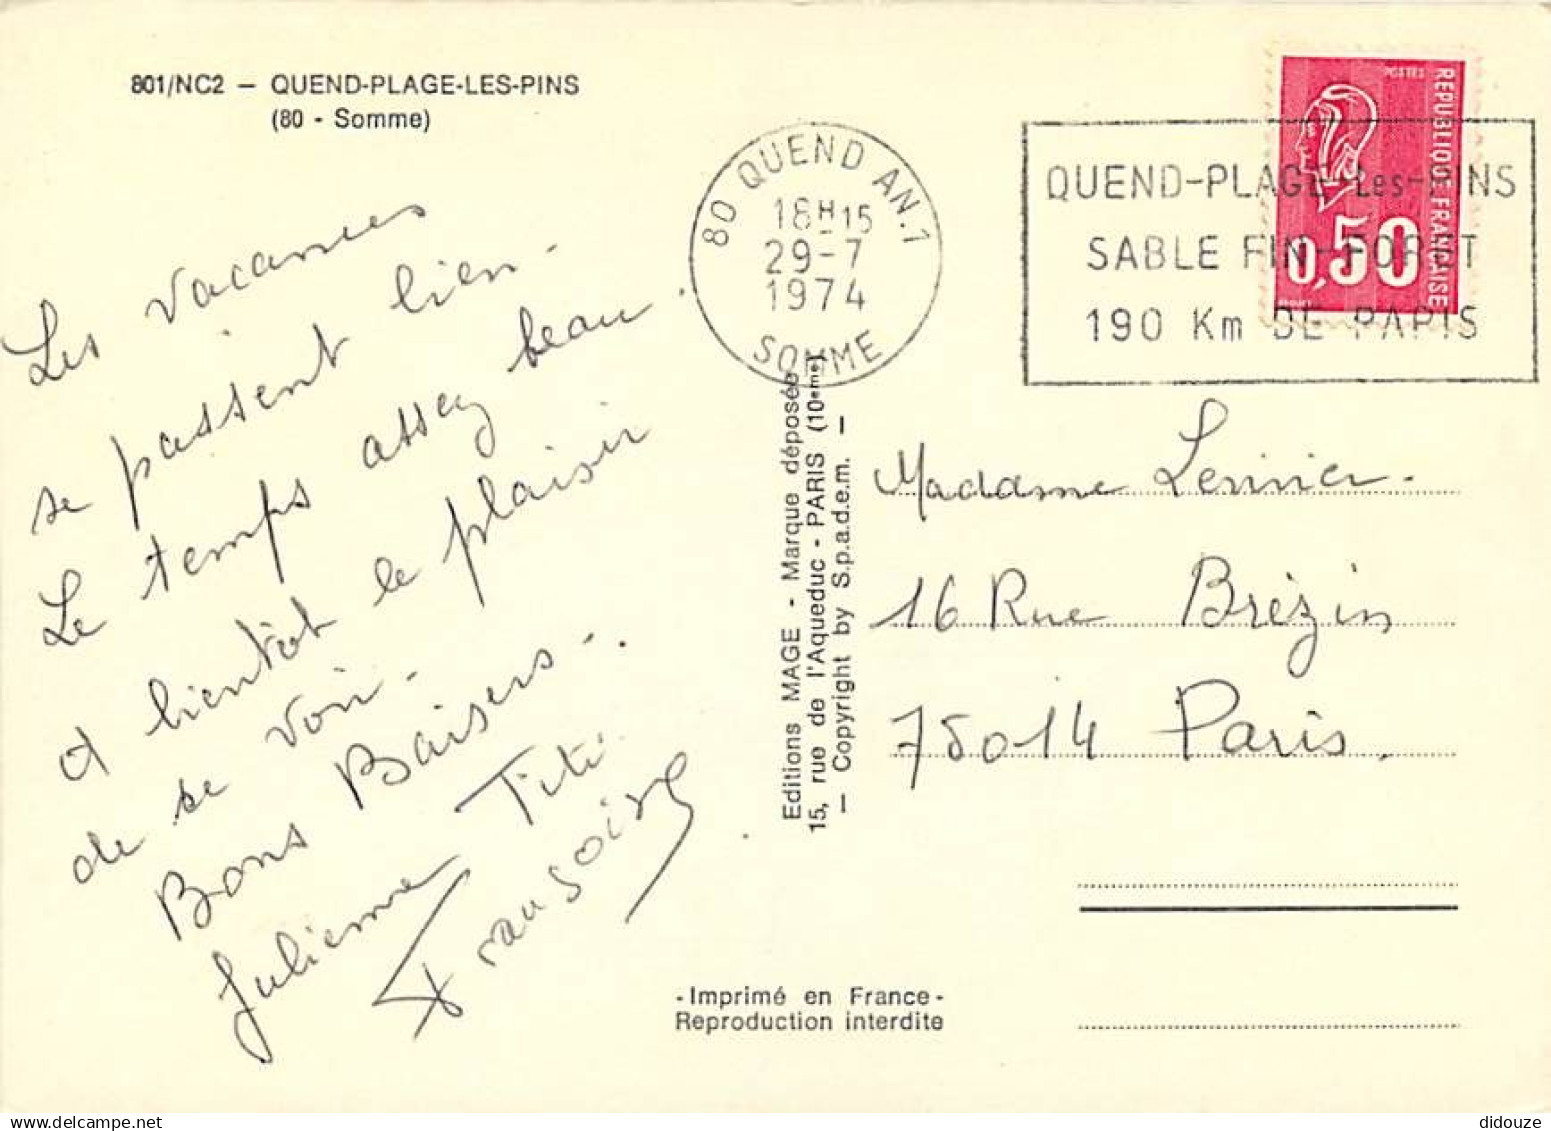 801/NC2 — QUEND-PLAGE-LES-PINS
(80 - Somme)
80 QUEND AN.1
18H15
29-7
1974
SOMME
QUEND-PLAGE-Les-PINS
SABLE FIN-FORET
190 Km DE PARIS
POSTES
REPUBLIQUE FRANCAISE
0,50
Les vacances
se passent bien -
Le temps assez beau.
et bientôt le plaisir
de se voir -
Bons Baisers - .
Julienne Titi
Fransoise
Editions MAGE - Marque déposée
15, rue de l'Aqueduc - PARIS (10eme)
— Copyright by S.p.a.d.e.m. —
Madame
16 Rue Brézin
75014 Paris.
-Imprimé en France-
Reproduction interdite
didouze